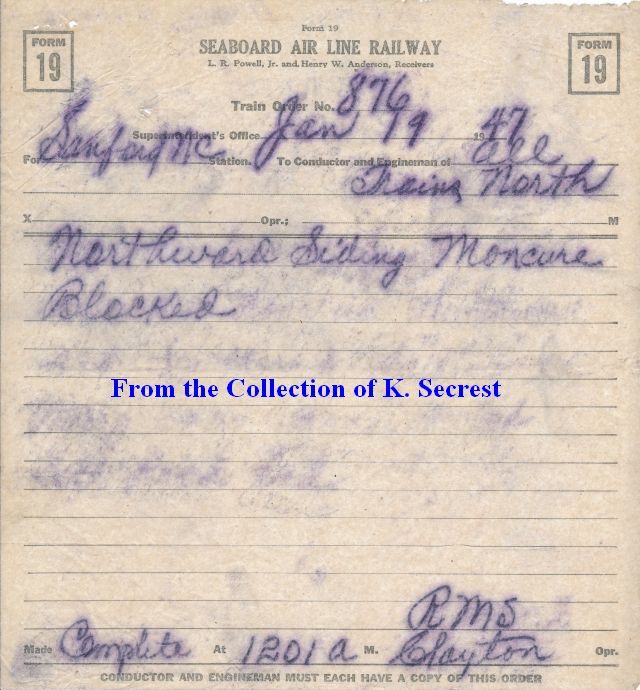 Form 19
FORM 19 SEABOARD AIR LINE RAILWAY FORM 19
L. R. Powell, Jr. and Henry W. Anderson, Receivers
Train Order No. 876
Superintendent's Office Jan 19 1947
For Sanford NC Station. To Conductor and Engineman of all
Trains North
X Opr.; M
Northward Siding Moncure
Blocked
From the Collection of K. Secrest
RMS
Made Complete At 1201 a M. Clayton Opr.
CONDUCTOR AND ENGINEMAN MUST EACH HAVE A COPY OF THIS ORDER